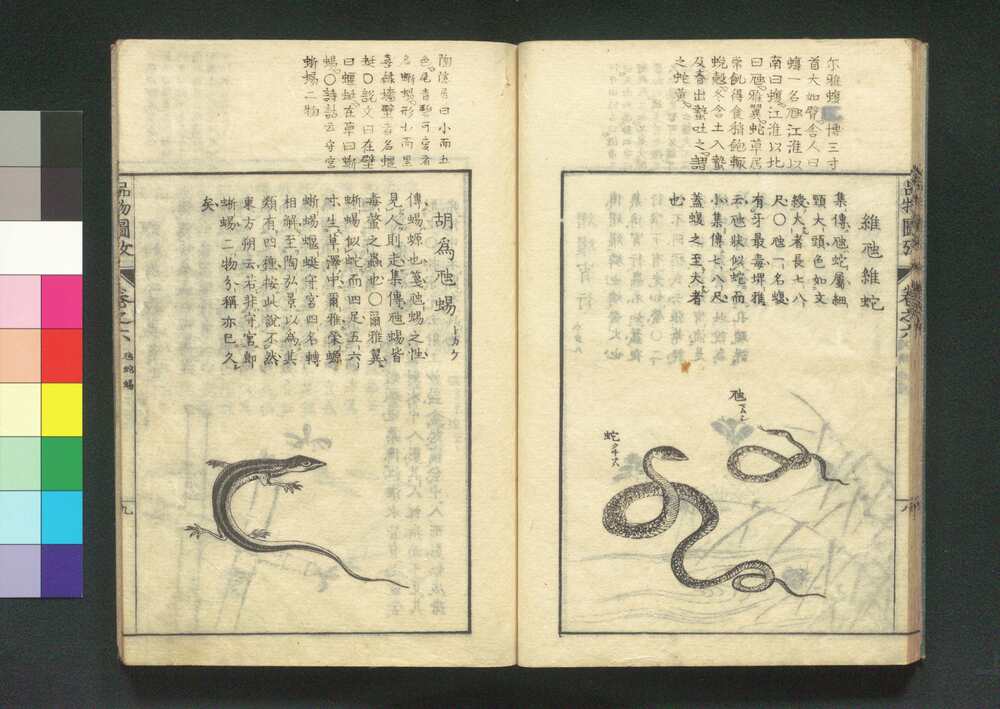 尓雅蝮
博三寸
首大如臂舎人曰
蝮一名虺江淮以
南曰蝮江淮以北
曰虺雅翼蛇草居
常飢得食稍飽輒
蛻殻冬含土入蟄
及春出蟄吐之謂
之蛇黄
維虺維蛇
集傳虺蛇屬細
頸大頭色如文
綬大者長七八
尺〇虺一名蝮
有牙最毒埤雅
云虺狀似蛇而
小集傳七八尺
蓋蝮之至大者
也
虺
蛇
品物圖攷
卷之六
八
陶隱居曰小而五
色尾青碧可愛者
名蜥蜴形小而黑
喜緣墻壁者名蝘
蜓〇說文曰在壁
曰蝘蜓在草曰蜥
蜴〇詩詁云守宮
蜥蜴二物
胡為虺蜴 トカケ
傳蜴螈也箋虺蜴之性
見人則走集傳虺蜴皆
毒螫之蟲也〇爾雅翼
蜥蜴似蛇而四足五六
寸生草澤中爾雅榮螈
蜥蜴蝘蜓守宮四名轉
相解至陶弘景以為其
類有四種按此說不然
東方朔云若非守宮即
蜥蜴二物分稱亦已久
矣
品物圖攷
卷之六
虺蛇蜴
九